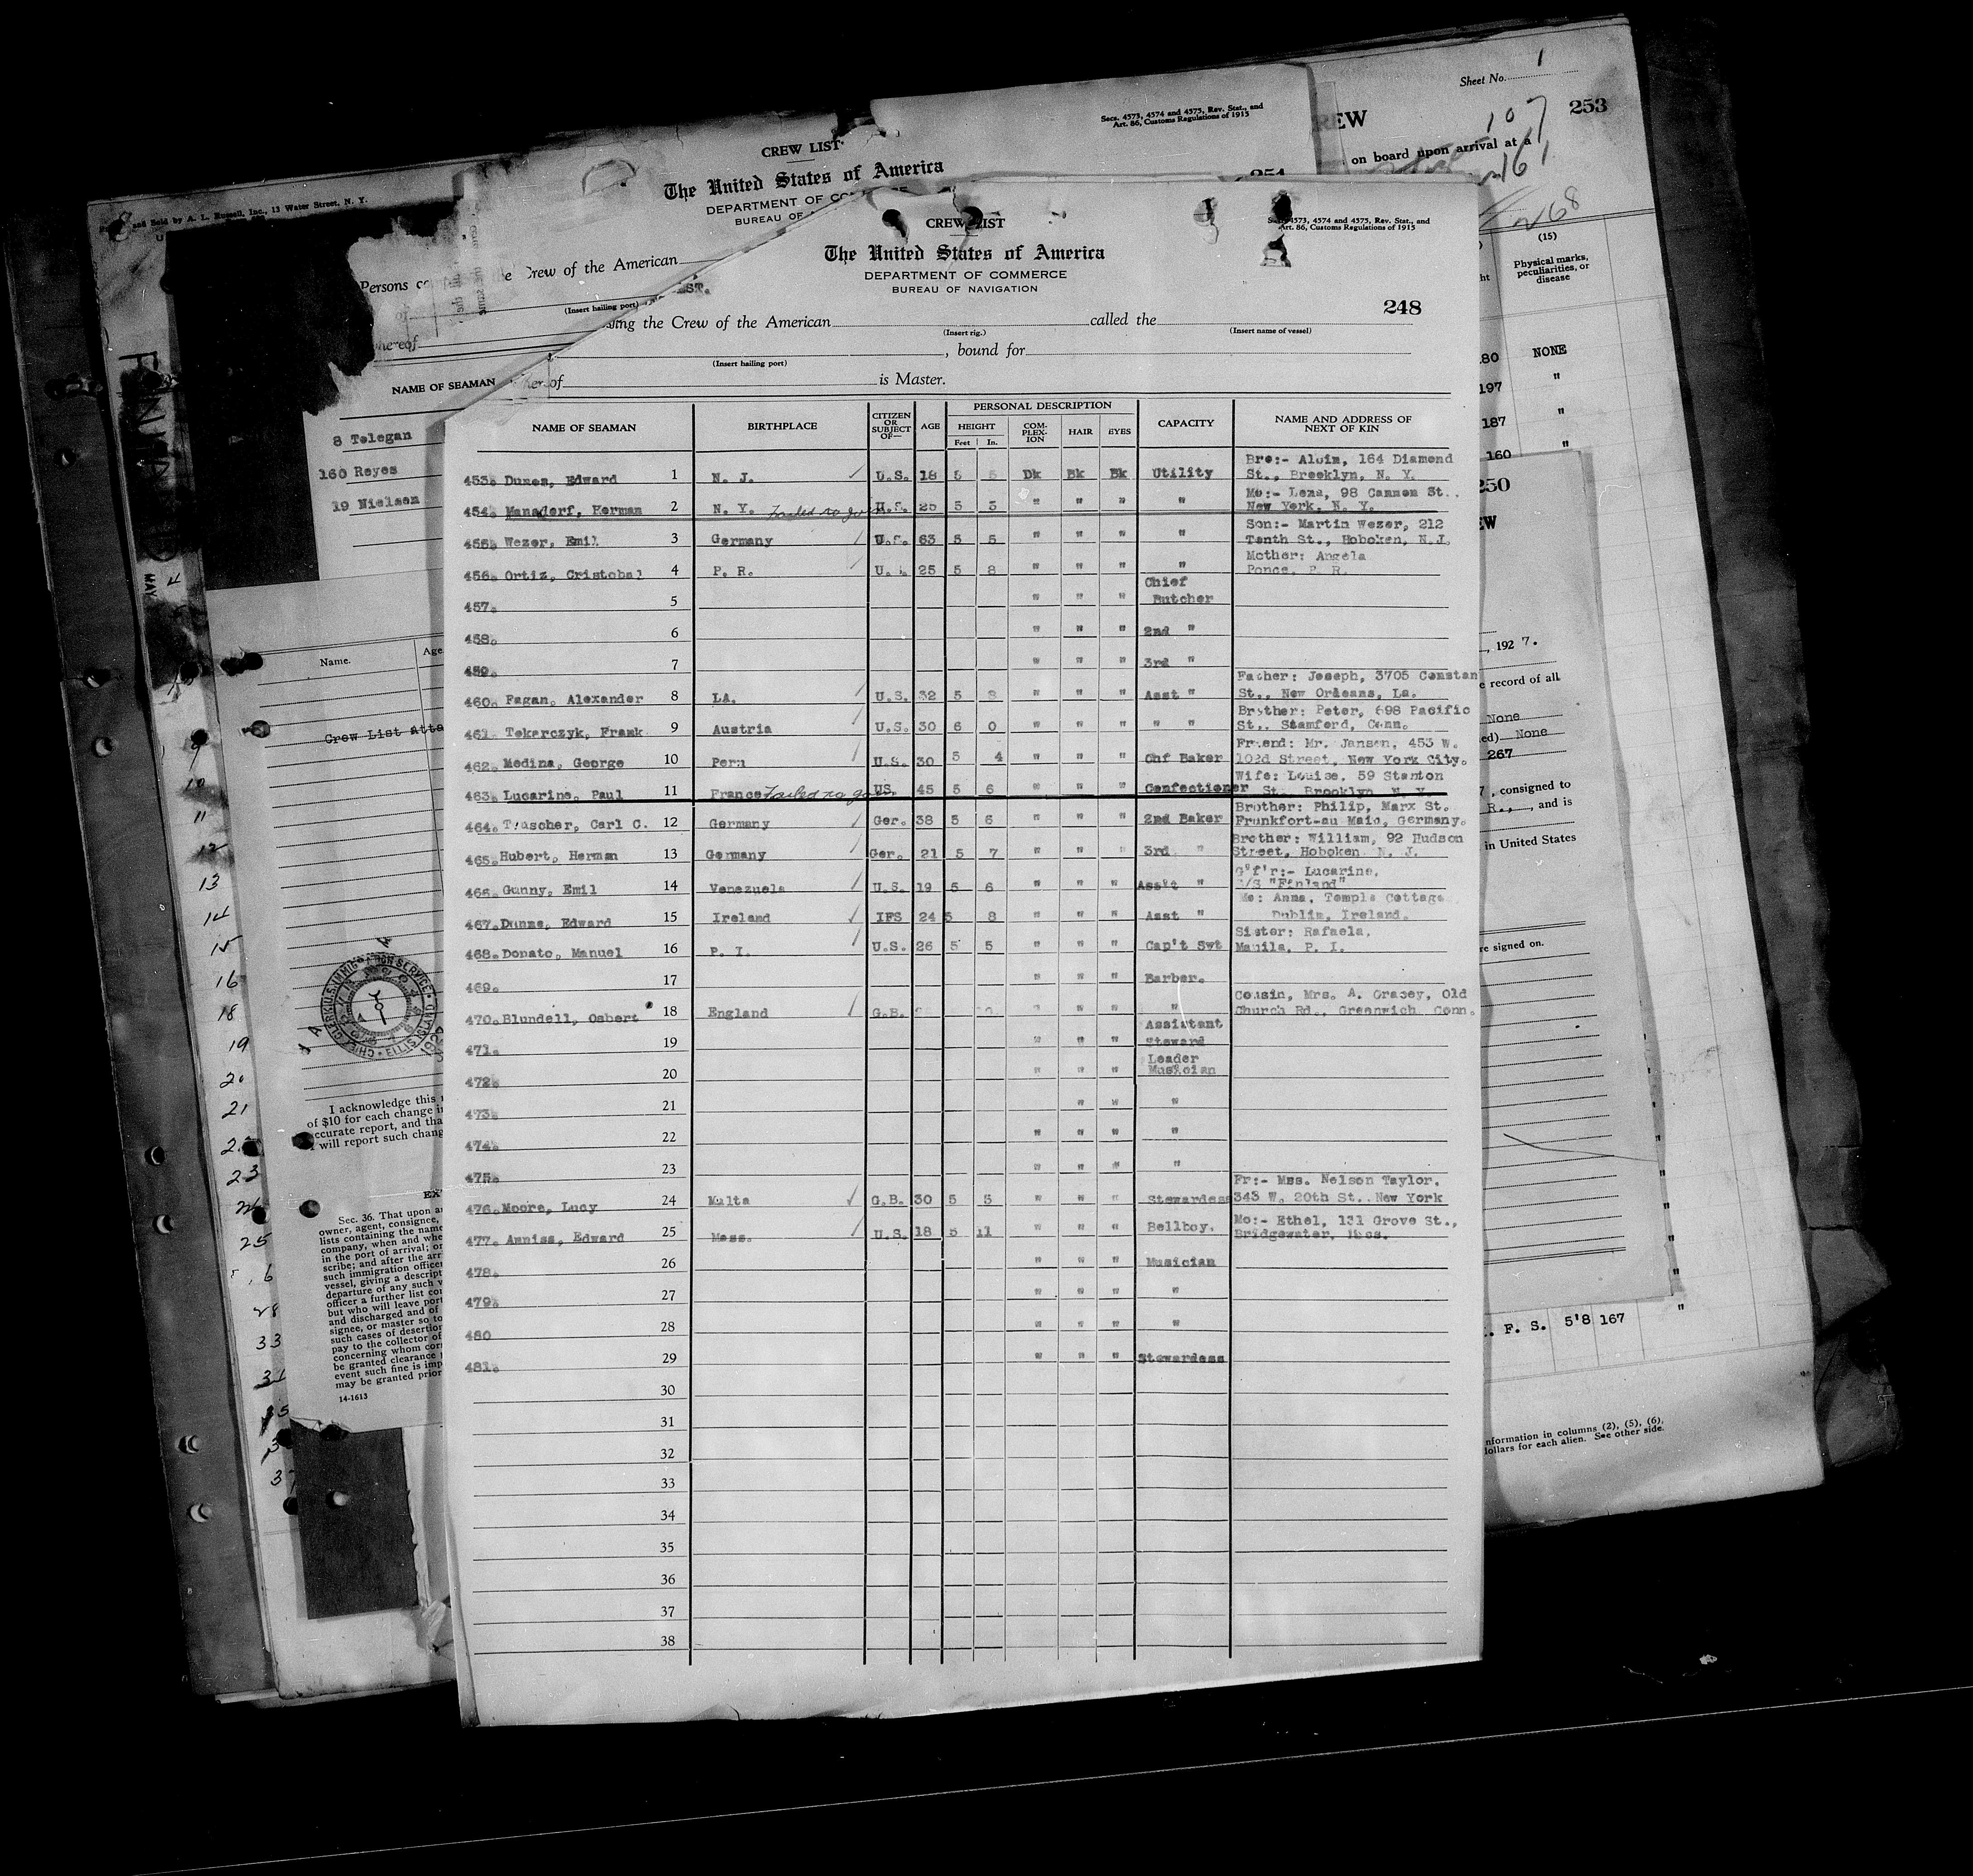 and Sold by A. L. Russell, Inc., 13 Water Street, N. Y.
Sheet No. 1
253
REW
on board upon arrival at a
107
161
Secs. 4573, 4574 and 4575, Rev. Stat., and
Art. 86, Customs Regulations of 1915
CREW LIST
The United States of America
DEPARTMENT OF
BUREAU OF
Crew of the American
(Insert hailing port)
NAME OF SEAMAN
8 Telegan
160 Reyes
19 Nielsen
(15)
Physical marks,
peculiarities, or
disease
80 NONE
197 "
187 "
160 "
250
EW
, 1927.
record of all
None
ed) None
267
, consigned to
R., and is
in United States
re signed on.
. F. S. 5'8 167 "
nformation in columns (2), (5), (6),
dollars for each alien. See other side.
Name.
Age
Crew List Atta
I acknowledge this
of $10 for each change i
ccurate report, and tha
will report such chang
Sec. 36. That upon a
owner, agent, consignee,
lists containing the name
company, when and whe
in the port of arrival; or
scribe; and after the arr
such immigration officer
vessel, giving a descript
departure of any such v
officer a further list co
but who will leave port
and discharged and of
signee, or master so to
such cases of desertion
pay to the collector of
concerning whom cor
be granted clearance
event such fine is imp
may be granted prior
14-1613
9
10
11
12
13
14
15
16
18
19
20
21
23
25
28
33
CREW LIST
4573, 4574 and 4575, Rev. Stat., and
Art. 86, Customs Regulations of 1915
The United States of America
DEPARTMENT OF COMMERCE
BUREAU OF NAVIGATION
248
ing the Crew of the American called the
(Insert rig.) (Insert name of vessel)
, bound for
(Insert hailing port)
of is Master.
NAME OF SEAMAN BIRTHPLACE CITIZEN OR SUBJECT OF— AGE PERSONAL DESCRIPTION HEIGHT Feet In. COM-PLEX-ION HAIR EYES CAPACITY NAME AND ADDRESS OF NEXT OF KIN
453. Dunen, Edward 1 N. J. U.S. 18 5 5 Dk Bk Bk Utility Bro:- Alvin, 164 Diamond St., Brooklyn, N. Y.
454. Mansdorf, Herman 2 N. Y. Failed to join U.S. 25 5 3 " " " " Mo:- Lena, 98 Cannon St., New York, N. Y.
455. Wezer, Emil 3 Germany U.S. 63 5 5 " " " " Son:- Martin Wezer, 212 Tenth St., Hoboken, N.J.
456. Ortiz, Cristobal 4 P. R. U.S. 25 5 8 " " " " Mother: Angela Ponce, P. R.
457. 5 " " " Chief Butcher
458. 6 " " " 2nd "
459. 7 " " " 3rd "
460. Fagan, Alexander 8 LA. U.S. 32 5 8 " " " Asst " Father: Joseph, 3705 Constan St., New Orleans, La.
461. Tokarczyk, Frank 9 Austria U.S. 30 6 0 " " " " " Brother: Peter, 698 Pacific St., Stamford, Conn.
462. Medina, George 10 Peru U.S. 30 5 4 " " " Chf Baker Friend: Mr. Jansen, 453 W. 102d Street, New York City.
463. Lucarine, Paul 11 France Failed to join US. 45 5 6 " " " Confectioner Wife: Louise, 59 Stanton St., Brooklyn N. Y.
464. Tauscher, Carl C. 12 Germany Ger. 38 5 6 " " " 2nd Baker Brother: Philip, Marx St. Frunkfort-au Main, Germany.
465. Hubert, Herman 13 Germany Ger. 21 5 7 " " " 3rd " Brother: William, 92 Hudson Street, Hoboken N. J.
466. Gunny, Emil 14 Venezuela U.S. 19 5 6 " " " Ass't " G'f'r:- Lucarine, S/S "Finland"
467. Dunne, Edward 15 Ireland IFS 24 5 8 " " " Asst " Mo: Anna, Temple Cottage Dublin, Ireland.
468. Donato, Manuel 16 P. I. U.S. 26 5 5 " " " Cap't Swt Sister: Rafaela, Manila, P. I.
469. 17 " " " Barber.
470. Blundell, Osbert 18 England G.B. " " " " Cousin, Mrs. A. Gracey, Old Church Rd., Greenwich Conn.
471. 19 " " " Assistant Steward
472. 20 " " " Leader Musician
473. 21 " " "
474. 22 " " " "
475. 23 " " " "
476. Moore, Lucy 24 Malta G.B. 30 5 5 " " " Stewardess Fr:- Mss. Nelson Taylor, 343 W. 20th St., New York
477. Anniss, Edward 25 Mass. U.S. 18 5 11 " " " Bellboy. Mo:- Ethel, 131 Grove St., Bridgewater, Mass.
478. 26 " " " Musician
479. 27 " " " "
480 28 " " " "
481. 29 " " " Stewardess
30
31
32
33
34
35
36
37
38